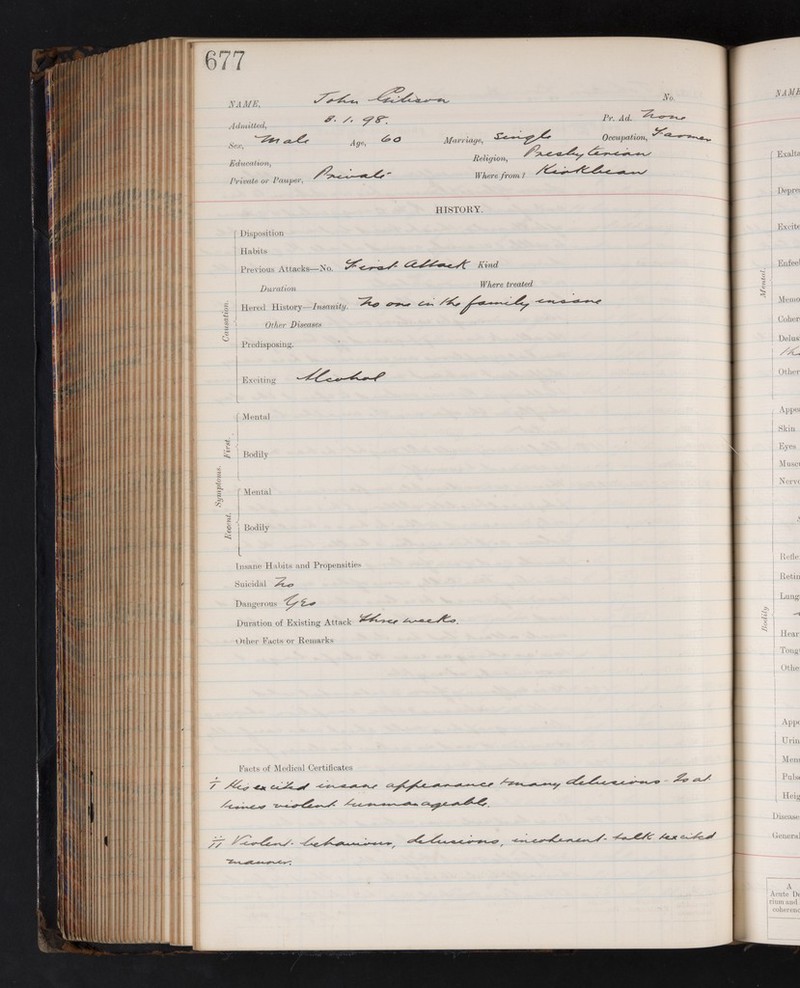 677
NAME, John Gibson No.
Admitted, 8. 1. 98. Pr. Ad. None
Sex, Male Age, 60 Marriage, Single Occupation, Farmer
Education, Religion, Presbyterian
Private or Pauper, Private Where from? Kirkbean
HISTORY.
Disposition
Habits
Previous Attacks—No. First Attack Kind
Duration Where treated
Hered. History—Insanity. No one in the family insane
Other Diseases
Predisposing.
Exciting Alcohol
Causation.
Mental
Bodily
First.
Mental
Bodily
Recent.
Symptoms.
Insane Habits and Propensities
Suicidal No
Dangerous Yes
Duration of Existing Attack three weeks.
Other Facts or Remarks
Facts of Medical Certificates
I His excited insane appearance & many delusions - Is at
times violent & unmanageable.
II Violent behaviour, delusions, incoherent talk & excited
manner.
NAME
Exalta
Depre
Excite
Enfeel
Memo
Coher
Delus
Other
Mental.
Appea
Skin
Eyes
Musc
Nervo
Refle
Retin
Lung
Hear
Tong
Othe
Bodily
Appe
Urin
Men
Puls
Heig
Disease
General
A
Acute De
rium and
coherenc